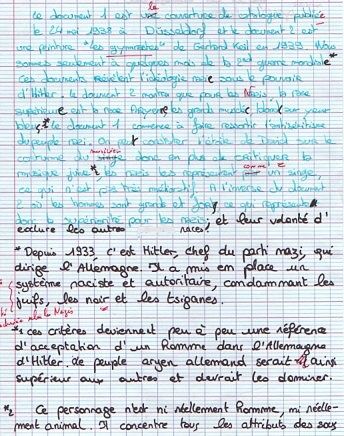 le
Ce document 1 est une couverture de catalogue publiée
le 24 mai 1938 à Düsseldorf et le document 2 est
une peinture "les gymnastes" de Gerhard Keil en 1939. Nous
sommes seulement à quelques mois de la 2nd guerre mondiale*
Ces documents révèlent l'idéologie nazie sous le pouvoir
d'Hitler. Le document 2 montre que pour les Nazis, la race
supérieure est la race Aryenne les grands musclés blonds aux yeux
bleus.*1 Le document 1 commence à faire ressortir l'antisémitisme
du peuple nazi l'étoile de David sur le
musicien
costume du singe donc en plus de critiquer la
comme
musique juive *2 les nazis les représentent un singe,
ce qui n'est pas très mélioratif. A l'inverse du document
2 où les hommes sont grands et forts ce qui représente
donc la supériorité pour les nazis, et leur volonté d'
exclure les autres races.
* Depuis 1933, c'est Hitler, chef du parti nazi, qui
dirige l'Allemagne. Il a mis en place un
système raciste et autoritaire, condamnant les
juifs, les noir et les tsiganes.
*1 ces critères deviennent peu à peu une référence
d'acceptation d'un Homme dans l'Allemagne
d'Hitler. Le peuple aryen allemand serait ainsi
supérieur aux autres et devrait les dominer.
*2 Ce personnage n'est ni réellement Homme, ni réelle-
ment animal. Il concentre tous les attributs des sous